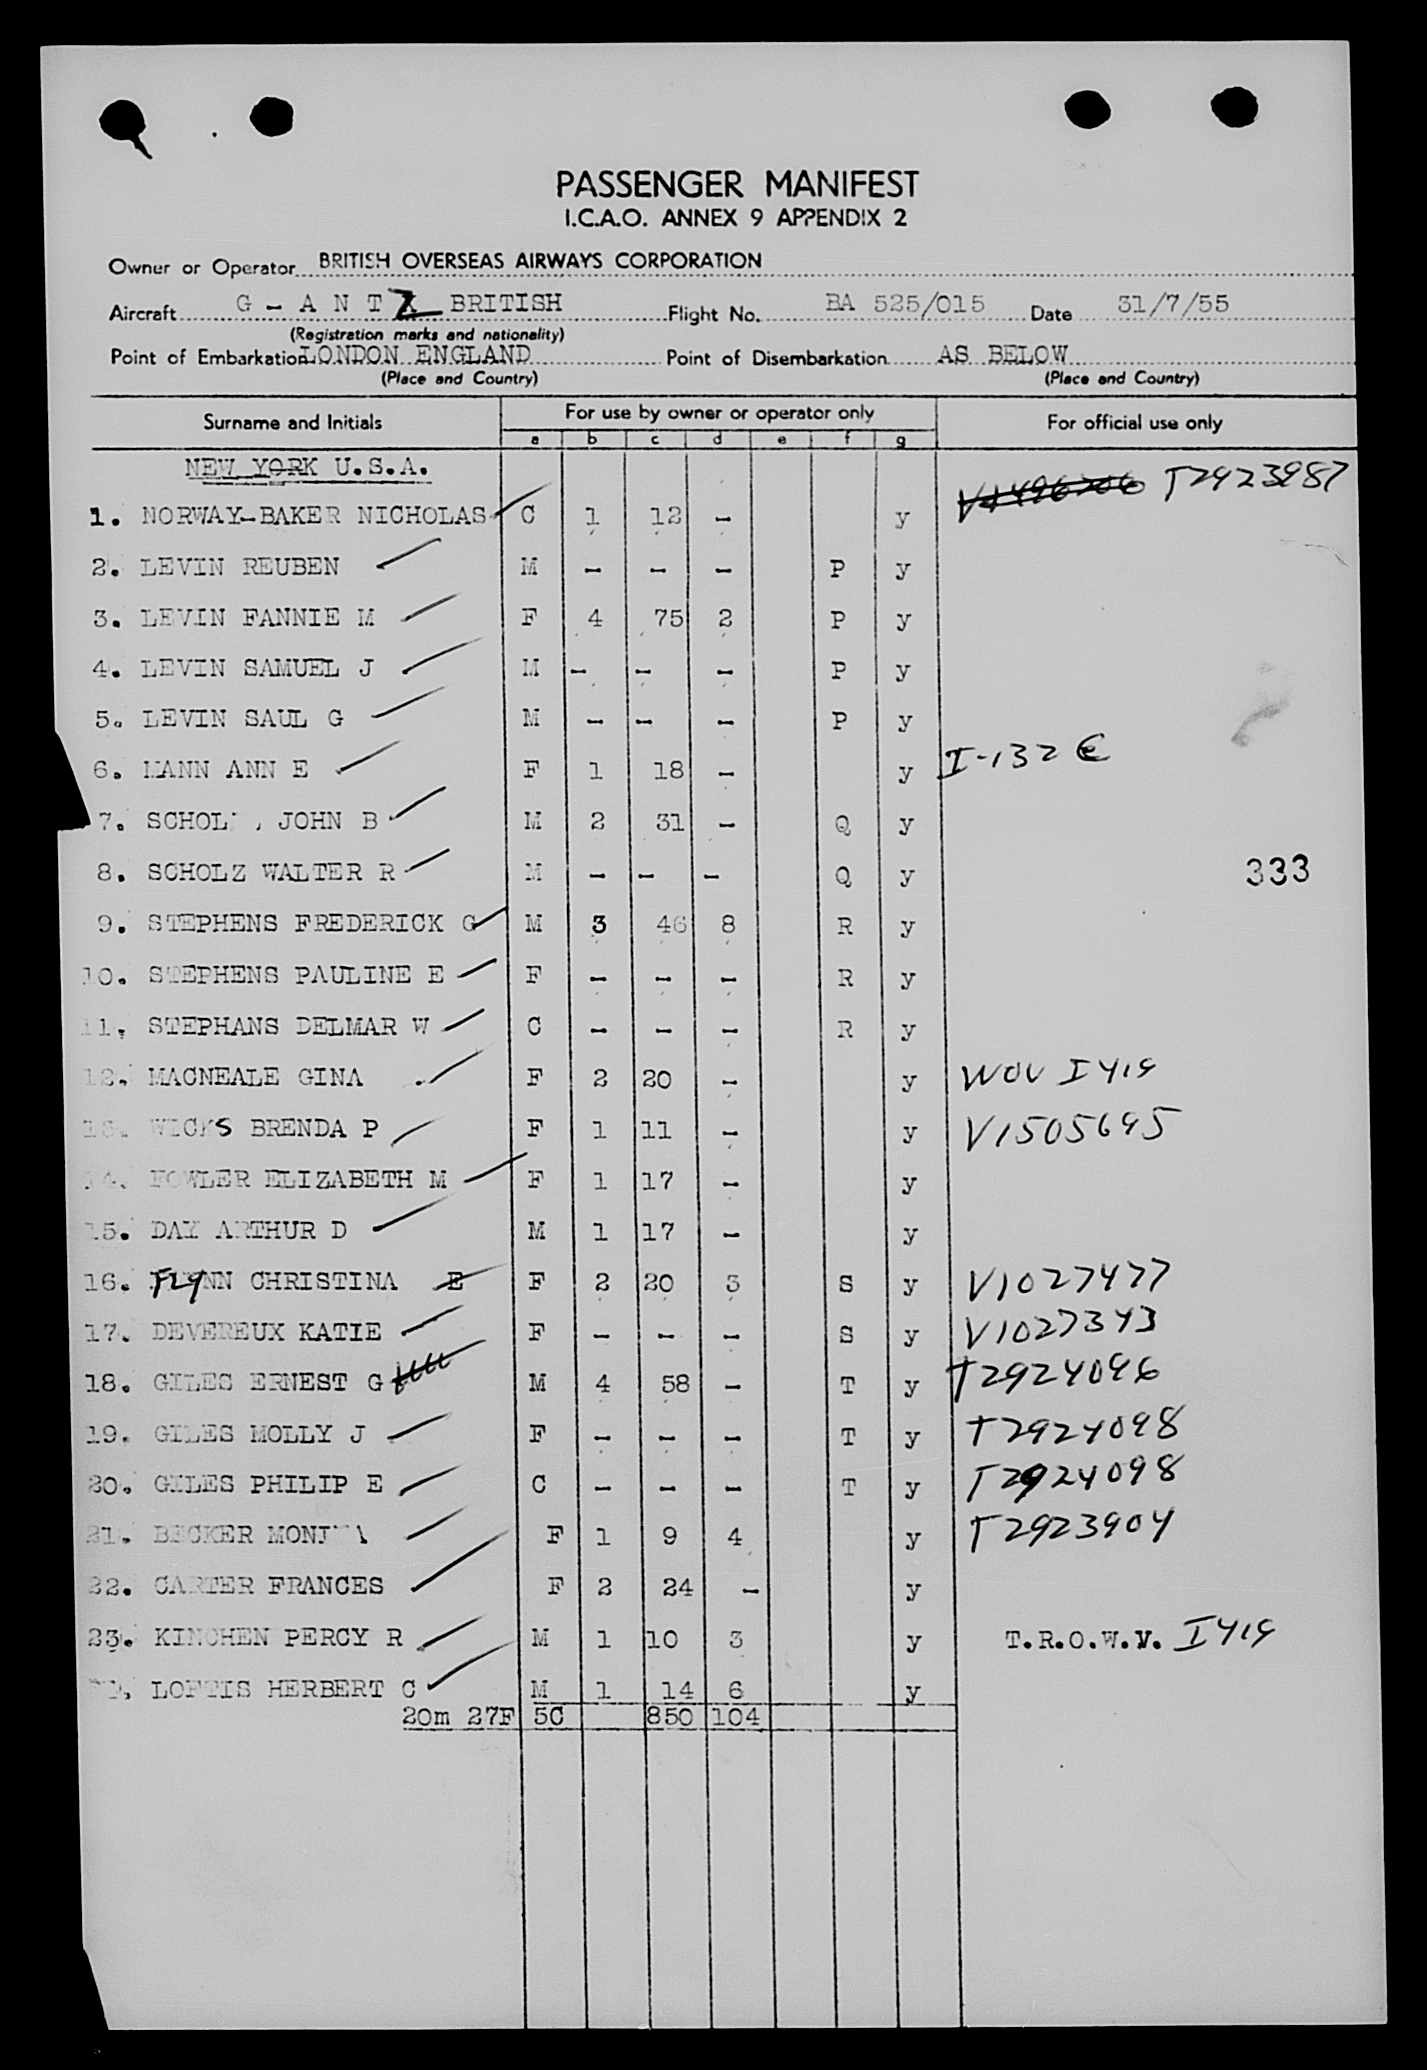 PASSENGER MANIFEST
I.C.A.O. ANNEX 9 APPENDIX 2
Owner or Operator BRITISH OVERSEAS AIRWAYS CORPORATION
Aircraft G - A N T BRITISH Flight No. BA 525/015 Date 31/7/55
(Registration marks and nationality)
Point of Embarkation LONDON ENGLAND Point of Disembarkation AS BELOW
(Place and Country) (Place and Country)
Surname and Initials For use by owner or operator only For official use only
a b c d e f g
NEW YORK U.S.A.
T2923987
1. NORWAY-BAKER NICHOLAS C 1 12 - y
2. LEVIN REUBEN M - - - P y
3. LEVIN FANNIE M F 4 75 2 P y
4. LEVIN SAMUEL J M - - - P y
5. LEVIN SAUL G M - - - P y
6. MANN ANN E F 1 18 - y I-132 €
7. SCHOL , JOHN B M 2 31 - Q y
8. SCHOLZ WALTER R M - - - Q y 333
9. STEPHENS FREDERICK G M 3 46 8 R y
10. STEPHENS PAULINE E F - - - R y
11. STEPHANS DELMAR W C - - - R y
12. MACNEALE GINA F 2 20 - y WOV I 419
13. WICKS BRENDA P F 1 11 - y V1505695
14. FOWLER ELIZABETH M F 1 17 - y
15. DAY ARTHUR D M 1 17 - y
16. FLYNN CHRISTINA E F 2 20 3 S y V1027477
17. DEVEREUX KATIE F - - - S y V1027343
18. GILES ERNEST G M 4 58 - T y T2924096
19. GILES MOLLY J F - - - T y T2924098
20. GILES PHILIP E C - - - T y T2924098
21. BECKER F 1 9 4 y T2923904
22. CARTER FRANCES F 2 24 - y
23. KINCHEN PERCY R M 1 10 3 y T.R.O.W.V. I 419
LOFTIS HERBERT C M 1 14 6 y
20m 27F 5C 850 104